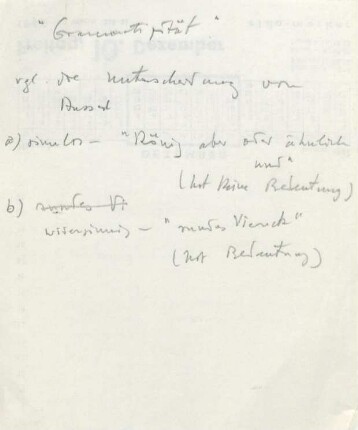 "Grammatizität"
vgl die Unterscheidung von
Aussd
a) sinnlos – "König aber oder ähnlich
und"
(hat keine Bedeutung)
b) rundes Vi
widersinnig – "rundes Viereck"
(hat Bedeutung)
Freitag, 10. Dezember